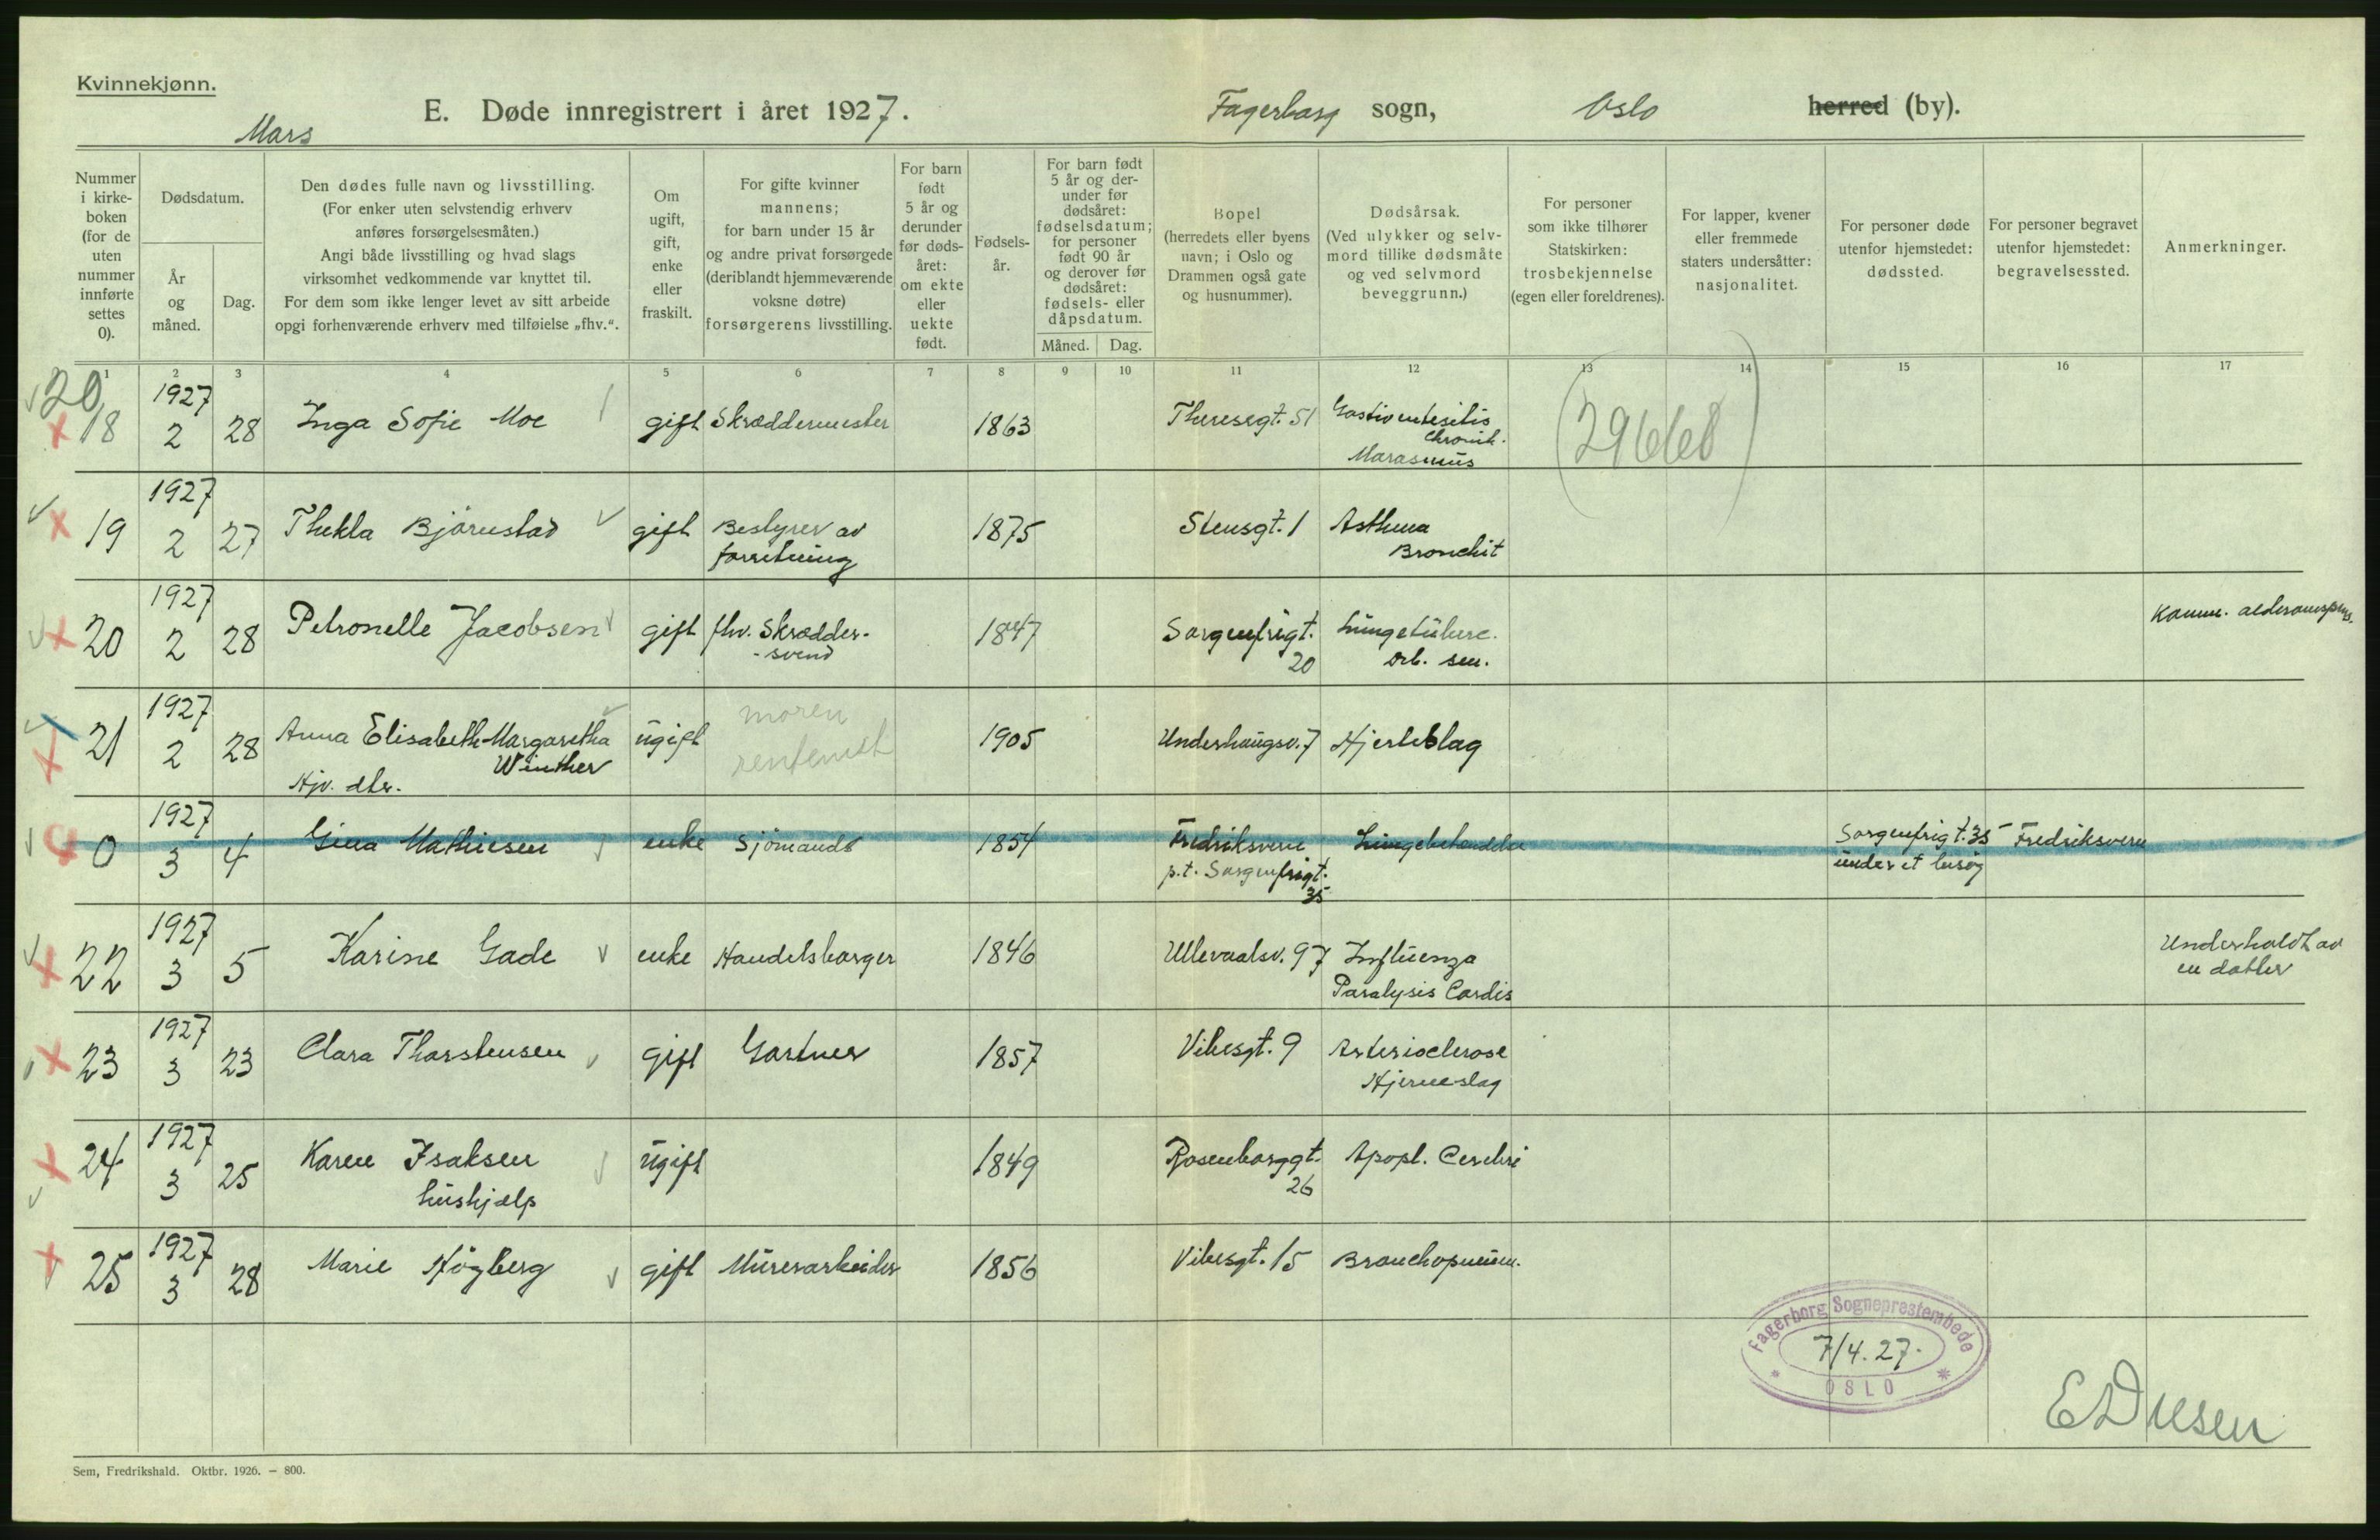 Kvinnekjønn.
E. Døde innregistrert i året 1927.
Fagerborg sogn, Oslo herred (by).
Mars
Nummer i kirke-boken (for de uten nummer innførte settes 0).
Dødsdatum.
År og måned.
Dag.
Den dødes fulle navn og livsstilling.
(For enker uten selvstendig erhverv
anføres forsørgelsesmåten.)
Angi både livsstilling og hvad slags
virksomhet vedkommende var knyttet til.
For dem som ikke lenger levet av sitt arbeide
opgi forhenværende erhverv med tilføielse „fhv.“.
Om ugift, gift, enke eller fraskilt.
For gifte kvinner
mannens;
for barn under 15 år
og andre privat forsørgede
(deriblandt hjemmeværende
voksne døtre)
forsørgerens livsstilling.
For barn født 5 år og derunder før døds-året: om ekte eller uekte født.
Fødsels-år.
For barn født 5 år og der-under før dødsåret: fødselsdatum; for personer født 90 år og derover før dødsåret: fødsels- eller dåpsdatum.
Måned.
Dag.
Bopel
(herredets eller byens
navn; i Oslo og
Drammen også gate
og husnummer).
Dødsårsak.
(Ved ulykker og selv-
mord tillike dødsmåte
og ved selvmord
beveggrunn.)
For personer
som ikke tilhører
Statskirken:
trosbekjennelse
(egen eller foreldrenes).
For lapper, kvener
eller fremmede
staters undersåtter:
nasjonalitet.
For personer døde
utenfor hjemstedet:
dødssted.
For personer begravet
utenfor hjemstedet:
begravelsessted.
Anmerkninger.
1 2 3 4 5 6 7 8 9 10 11 12 13 14 15 16 17
20
18 1927 2 28 Inga Sofie Moe gift Skræddermester 1863 Theresegt. 51 Gastroenteritis
chronik.
Marasmus
(29668)
19 1927 2 27 Thekla Bjørnstad gift Bestyrer av
forretning 1875 Stensgt. 1 Asthma
Bronchit
20 1927 2 28 Petronelle Jacobsen gift fhv. Skrædder-
-svend 1847 Sorgenfrigt.
20 Lungetuberc.
Deb. sen.
Komm. alderdomspens.
21 1927 2 28 Anna Elisabeth Margaretha
Winther
Hjv. dtr. ugift moren
rentenist 1905 Underhaugsv. 7 Hjerteslag
0 1927 3 4 Gina Mathiesen enke Sjømands 1854 Fredriksvern
p.t. Sorgenfrigt.
35 Lungebetændelse Sorgenfrigt. 35
under et besøg Fredriksvern
22 1927 3 5 Karine Gade enke Handelsborger 1846 Ullevaalsv. 97 Influenza
Paralysis Cordis Underholdt av
en datter
23 1927 3 23 Clara Thorstensen gift Gartner 1857 Vibesgt. 9 Arteriosclerose
Hjerneslag
24 1927 3 25 Karen Isaksen
hushjælp ugift 1849 Rosenborggt.
26 Apopl. Cerebri
25 1927 3 28 Marie Høgberg gift Murerarbeider 1856 Vibesgt. 15 Bronchopneum.
Fagerborg Sogneprestembede
7/4.27.
OSLO
Sem, Fredrikshald. Oktbr. 1926. – 800.